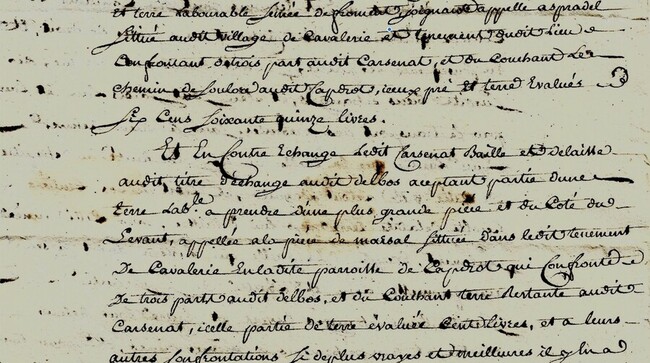 et terre Labourable semée de froment joignant appelle aspradel
sittué audit village de Cavalerie et tenement dudit Lieu
Confrontant de trois part audit Carsenat, et du Couchant Le
chemin de audit Capdrot, iceux pre et terre Evalués
six cens soixante quinze livres.
Et En Contre Echange Ledit Carsenat Baille et delaisse
audit titre d'échange audit delbos aceptant partie dune
terre Lab.le a prendre dune plus grande piece et du Coté du
Levant, appellée a la piece de marsal sittuée dans ledit tenement
De Cavalerie En Ladite parroisse de Capdrot qui Confronte
De trois parts audit delbos, et du Couchant terre Restante audit
Carsenat, icelle partie de terre évaluée Cent livres, et a leurs
autres Confrontations si de plus vrayes et meilleures il y en a